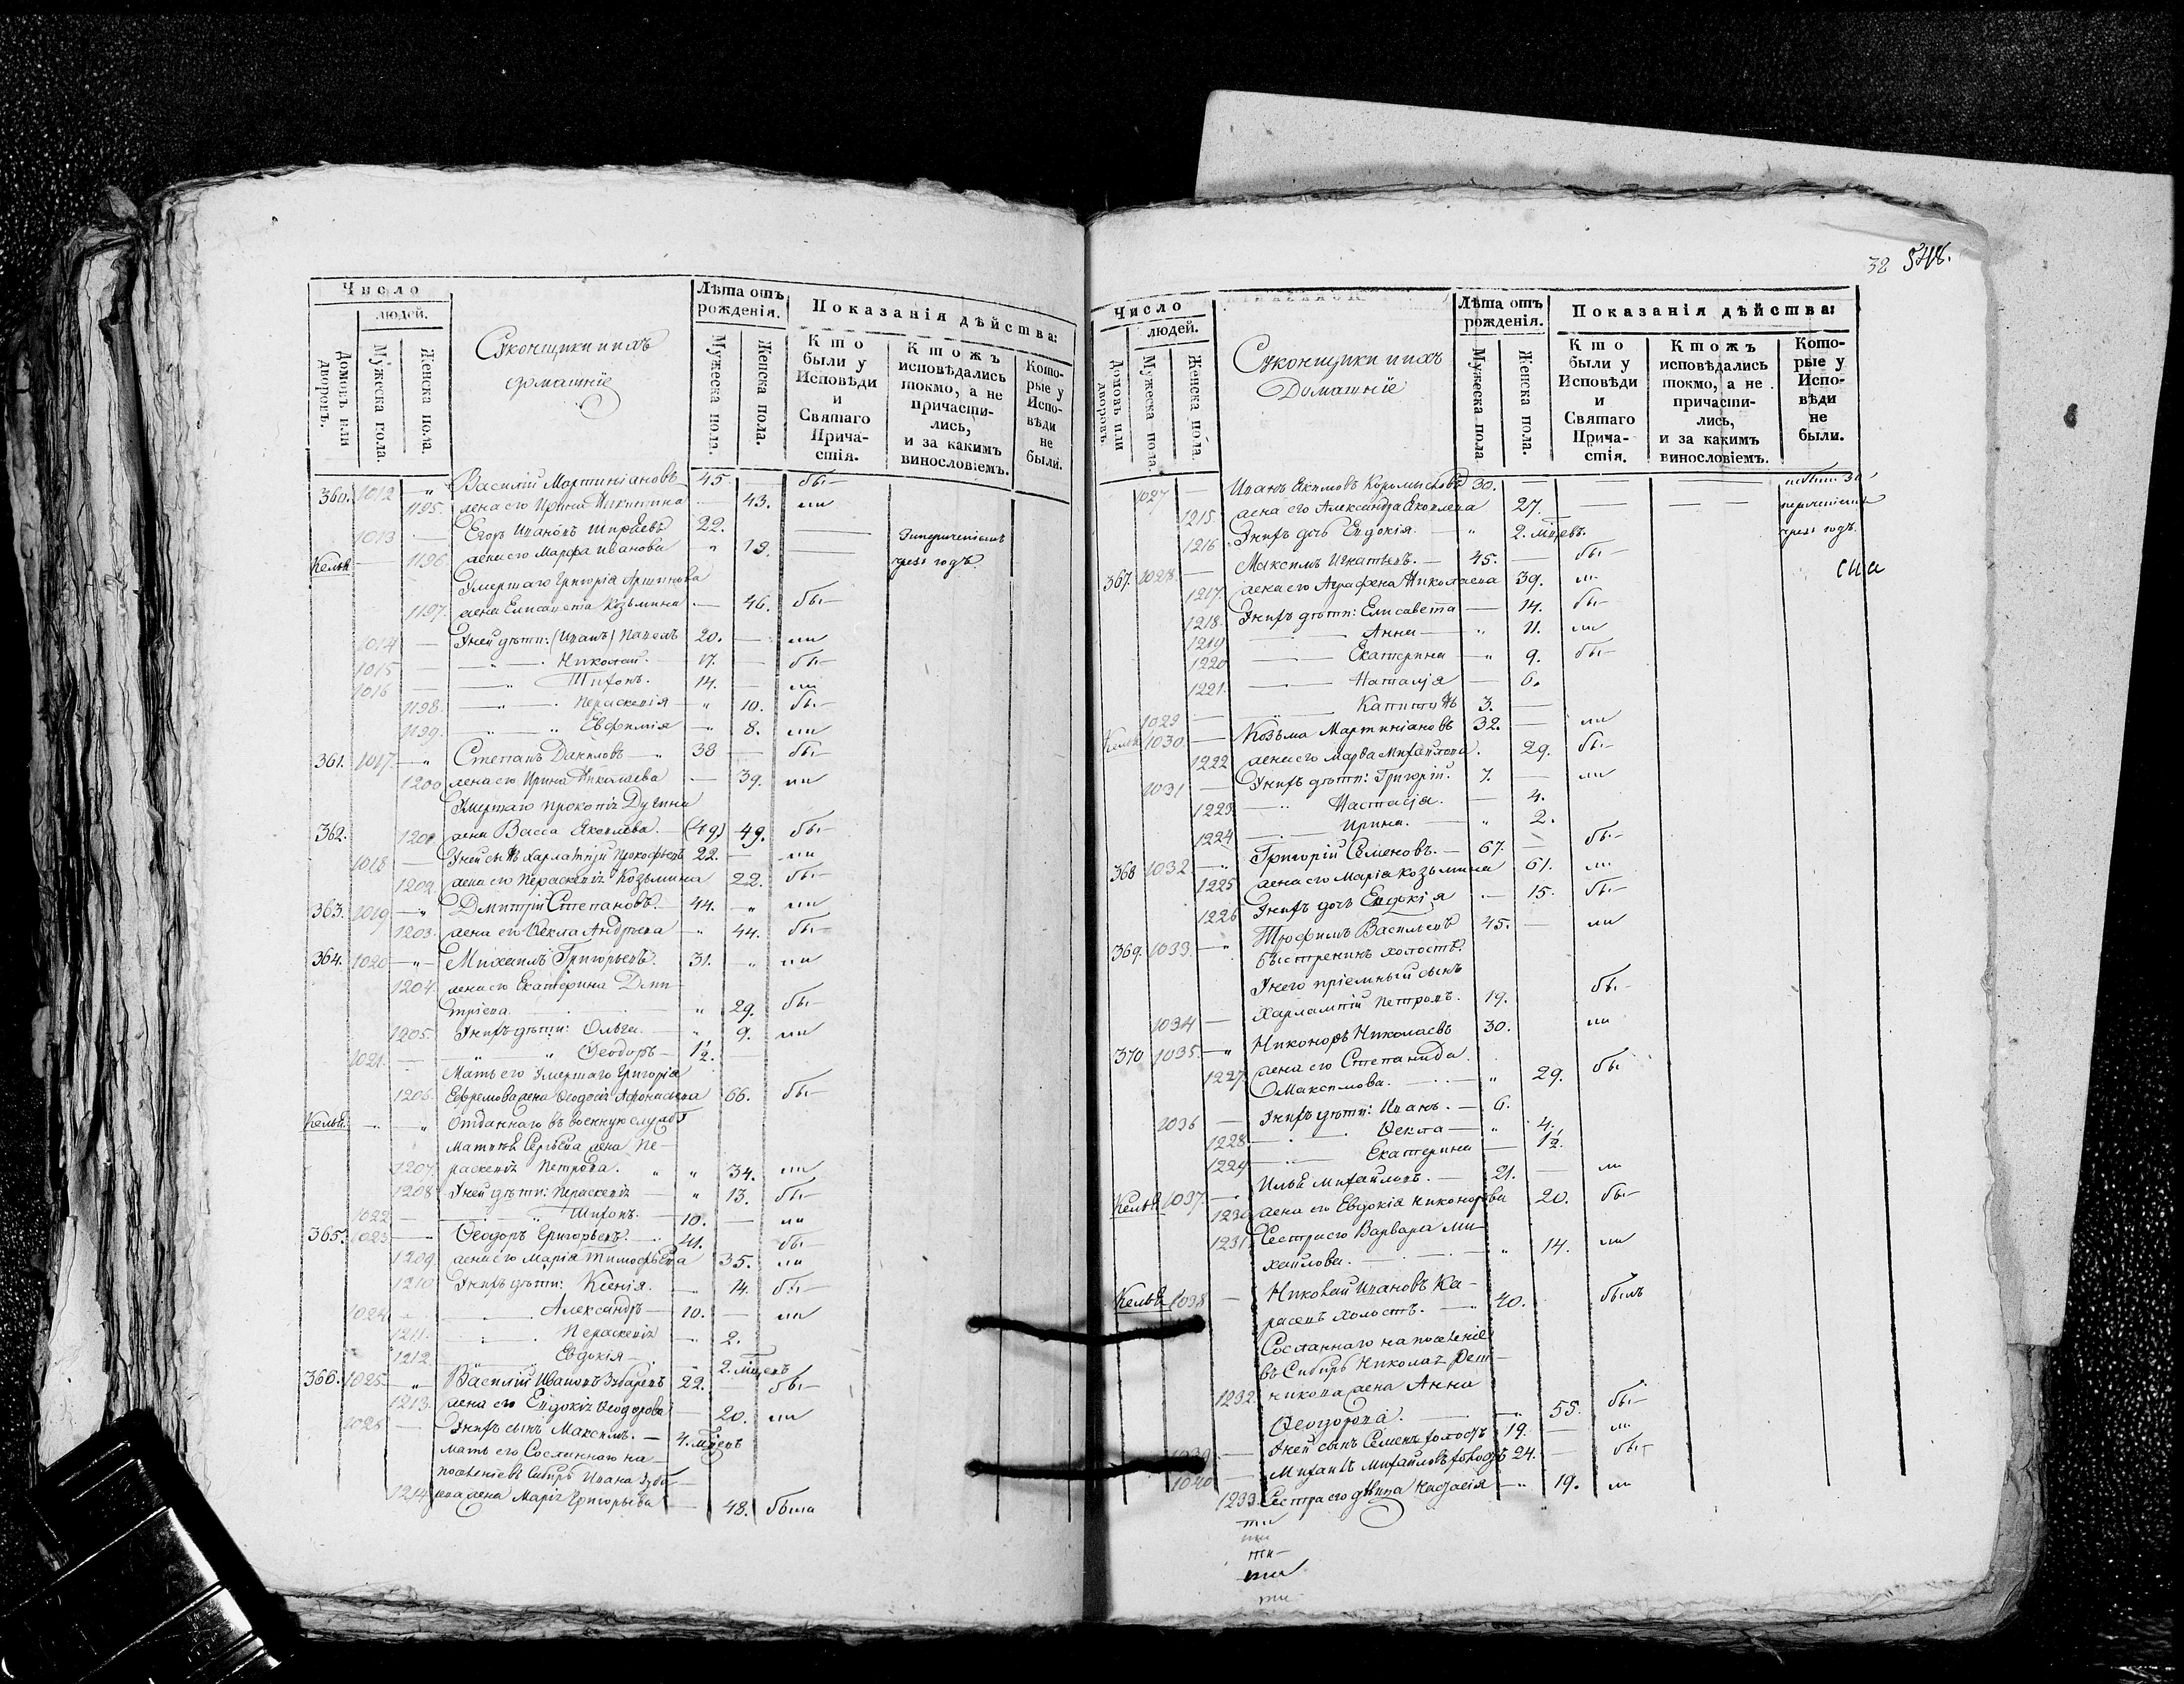 Число
людей.
Домовъ или дворовъ.
Мужеска пола.
Женска пола.
Суконщики и ихъ
домашнїе
Лѣта отъ рожденія.
Мужеска пола.
Женска пола.
Показанія дѣйства:
Кто были у Исповѣди и Святаго Причастія.
Ктожъ исповѣдались токмо, а не причастились, и за какимъ винословіемъ.
Которые у Исповѣди не были.
360. 1012 — Василій Мартиніановъ 45. — бы-
1195. жена его Ирина Никитина — 43. ли
1013 — Егоръ Ивановъ 22. —
Келья — 1196 жена его Марфа Иванова " 19. — чрезъ годъ.
Умершаго Григорія
1197. жена Елисавета Козьмина — 46. бы-
1014 — Уней дѣти: (Иванъ) Павелъ 20. — ли
1015 — Николай. 17. — бы-
1016 — Тихонъ. 14. — ли
1198. Параскевія " 10. бы-
1199. Евфимія — 8. ли
361. 1017 — Степанъ Даниловъ 38 — бы-
1200 жена его Ирина Николаева — 39. ли
Умершаго Прокопія
362. 1201 жена Васса Яковлева. (49) 49. бы-
1018 — Уней сынъ Харлампій Прокофьевъ 22. — ли
1202. жена его Параскевія Козьмина 22. бы-
363. 1019 — Дмитрій Степановъ. 44. " ли
1203. жена его Ѳекла Андреева " 44. бы-
364. 1020 — Михаилъ Григорьевъ. 31. " ли
1204. жена его Екатерина Дми-
тріева. " 29. бы-
1205. Унихъ дѣти: Ольга. " 9. ли
1021. — Ѳеодоръ 1½.
Мать его Умершаго Григорія
1206. Ефремова жена Ѳеодосія Афонасьева 66. бы-
Келья. Отданнаго въ военную службу
Матвѣя Сергѣева жена Па-
1207. раскевія Петрова. " " 34. ли
1208 Уней дѣти: Параскевія " 13. бы-
1022 — Тихонъ. 10. — ли
365. 1023 — Ѳеодоръ Григорьевъ 41. бы-
1209 жена его Марія Тимофѣева 35. ли
1210 Унихъ дѣти: Ксенія. — 14. бы-
1024 Александръ 10. — ли
1211. Параскевія — 2.
1212. Евдокія — 2. мцевъ
366. 1025 — Василій Ивановъ 22. — бы-
1213. жена его Евдокія Ѳеодорова — 20. ли
1026 — Унихъ сынъ Максимъ. — 4. мцевъ
мать его Сосланнаго на
поселеніе въ Сибирь Ивана
1214 жена Марія Григорьева — 48. была
32
Число
людей.
Домовъ или дворовъ.
Мужеска пола.
Женска пола.
Суконщики и ихъ
Домашнїе
Лѣта отъ рожденія.
Мужеска пола
Женска пола.
Показанія дѣйства:
Кто были у Исповѣди и Святаго Причастія.
Ктожъ исповѣдались токмо, а не причастились, и за какимъ винословіемъ.
Которые у Исповѣди не были.
1027 — Иванъ Екимовъ 30. —
1215. жена его Александра Яковлева 27. —
1216 Унихъ дочь Евдокія. — " 2. мцевъ. чрезъ годъ.
367. 1028. — Максимъ Игнатьевъ. — 45. — бы-
1217. жена его Аграфена Николаева 39. ли
1218. Унихъ дѣти: Елисавета — 14. бы-
1219 Анна " 11. ли
1220 Екатерина " 9. бы-
1221. Наталія — 6.
1029 — Капитонъ 3. —
Келья 1030 — Козьма Мартиніановъ 32. ли
1222 жена его Марѳа Михайлова. 29. бы-
1031 — Унихъ дѣти: Григорій. 7. — ли
1223 Настасія. — 4.
1224 Ирина. " 2.
368 1032 — Григорій Семеновъ. — 67. — бы-
1225 жена его Марія Козьмина 61. ли
1226 Унихъ дочь Евдокія — 15. бы-
369. 1033. — Трофимъ Васильевъ 45. — ли
холостъ.
Унего пріемный сынъ
1034 — Харлампій Петровъ. 19. бы-
370 1035 — Никоноръ Николаевъ 30. ли
1227. жена его Степанида
Максимова. " 29. бы
1036 — Унихъ дѣти: Иванъ. — 6.
1228 Ѳекла — " 4.
1229 Екатерина — 1½.
Келья 1037. — Илья Михайловъ. — 21. — ли
1230 жена его Евдокія Никонорова 20. бы-
1231 Сестра его Варвара Ми-
хайлова. " 14. ли
Келья 1038 — Николай Ивановъ Ка-
расевъ холостъ. 40. былъ
Сосланнаго на поселеніе
въ Сибирь Николая
1232 жена Анна
Ѳеодорова. 55. бы-
1039 — Уней сынъ Семенъ холостъ 19. — ли
1040 — Михаилъ Михайловъ холостъ 24. — бы-
1233. Сестра его дѣвица — 19. ли